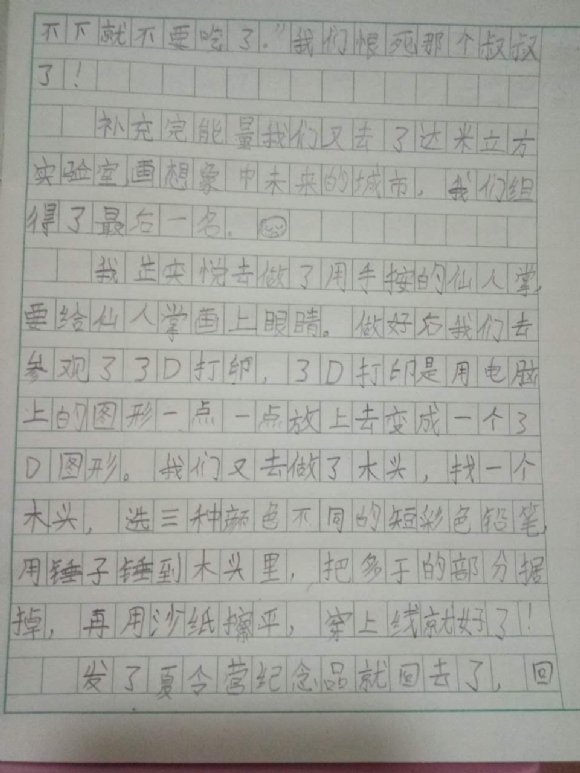 不下就不要吃了。”我们恨死那个叔叔
了！
补充完能量我们又去了达米立方
实验室画想象中未来的城市，我们组
得了最后一名。
我和奕悦去做了用手按的仙人掌，
要给仙人掌画上眼睛。做好后我们去
参观了3D打印，3D打印是用电脑
上的图形一点一点放上去变成一个3
D图形。我们又去做了木头，找一个
木头，选三种颜色不同的短彩色铅笔，
用锤子锤到木头里，把多于的部分据
掉，再用沙纸擦平，穿上线就好了！
发了夏令营纪念品就回去了，回